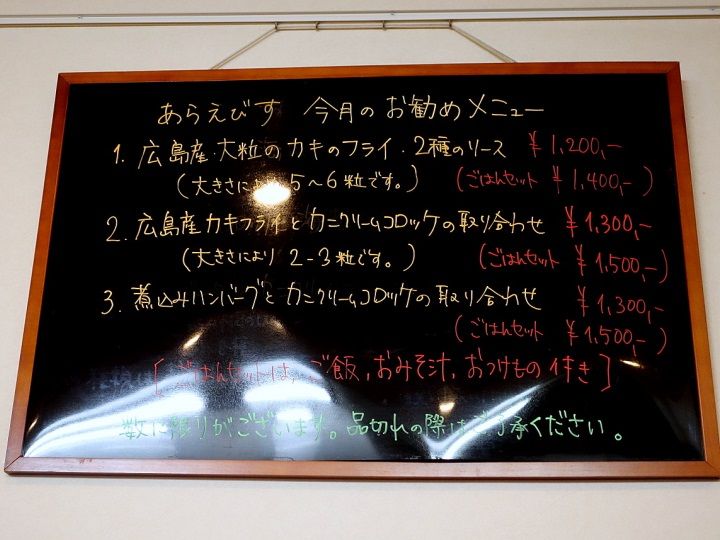 あらえびす 今月のお勧めメニュー
1. 広島産・大粒のカキのフライ・2種のソース ¥1,200,-
(大きさにより5~6粒です。) (ごはんセット ¥1,400,-)
2. 広島産カキフライとカニクリームコロッケの取り合わせ ¥1,300,-
(大きさにより2-3粒です。) (ごはんセット ¥1,500,-)
3. 煮込みハンバーグとカニクリームコロッケの取り合わせ ¥1,300,-
(ごはんセット ¥1,500,-)
[ごはんセットは、ご飯,おみそ汁,おつけもの付き]
数に限りがございます。品切れの際はご了承ください。